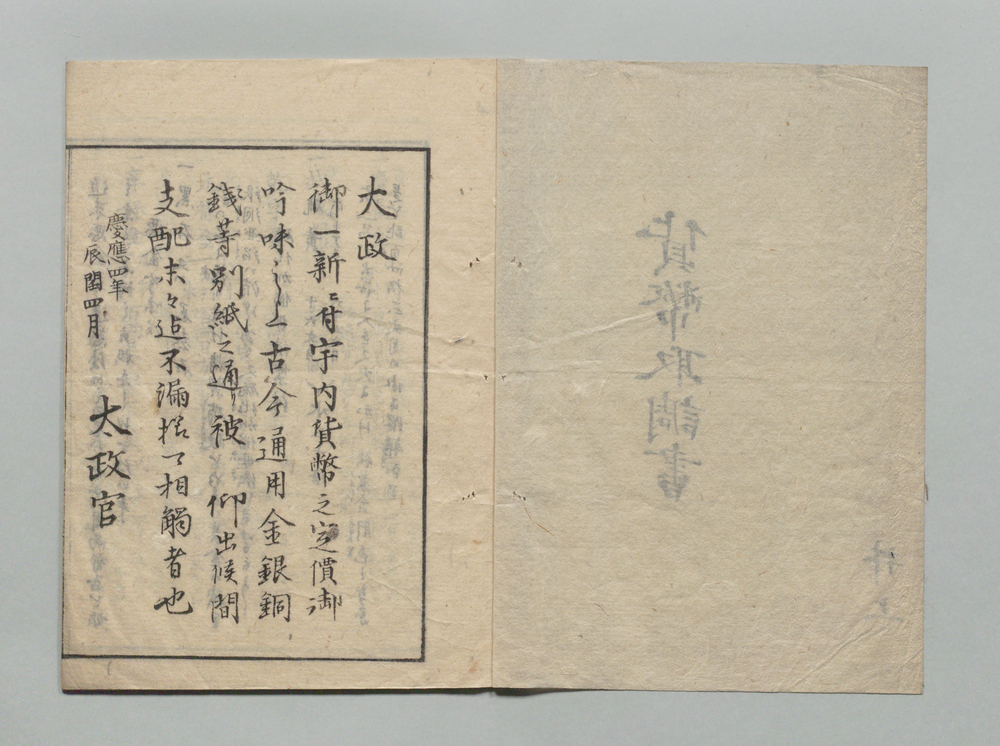 貨幣取調書
井上
大政
御一新ニ付宇内貨幣之定價御
吟味之上古今通用金銀銅
錢等別紙之通リ被 仰出候間
支配末々迠不漏様可相觸者也
慶應四年
辰閏四月
太政官